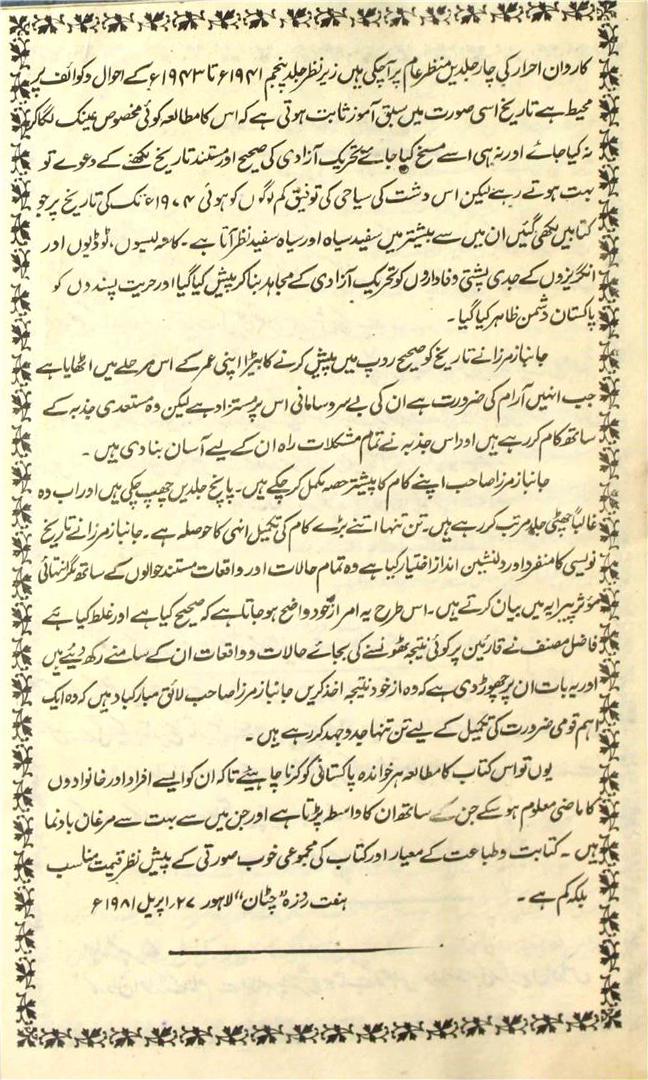 کاروان احرار کی چار جلدیں منظر عام پر آچکی ہیں زیر نظر جلد پنجم ۱۹۴۱ء تا ۱۹۴۳ء کے احوال و کوائف پر
محیط ہے تاریخ اسی صورت میں سبق آموز ثابت ہوتی ہے کہ اس کا مطالعہ کوئی مخصوص عینک لگا کر
نہ کیا جائے اور نہ ہی اسے مسخ کیا جائے تحریک آزادی کی صحیح اور مستند تاریخ لکھنے کے دعوے تو
بہت ہوتے رہے لیکن اس دشت کی سیاحی کی توفیق کم لوگوں کو ہوئی ۱۹۷۴ء تک کی تاریخ پر جو
کتابیں لکھی گئیں ان میں سے بیشتر میں سفید سیاہ اور سیاہ سفید نظر آتا ہے۔ کاسہ لیسوں، ٹوڈیوں اور
انگریزوں کے جدی پشتی وفاداروں کو تحریک آزادی کے مجاہد بنا کر پیش کیا گیا اور حریت پسندوں کو
پاکستان دشمن ظاہر کیا گیا۔
جانباز مرزا نے تاریخ کو صحیح روپ میں پیش کرنے کا بیڑا اپنی عمر کے اس مرحلے میں اٹھایا ہے
جب انہیں آرام کی ضرورت ہے ان کی بے سروسامانی اس پر مستزاد ہے لیکن وہ مستعدی جذبہ کے
ساتھ کام کر رہے ہیں اور اس جذبہ نے تمام مشکلات راہ ان کے لیے آسان بنا دی ہیں۔
جانباز مرزا صاحب اپنے کام کا بیشتر حصہ مکمل کر چکے ہیں۔ پانچ جلدیں چھپ چکی ہیں اور اب وہ
غالباً چھٹی جلد مرتب کر رہے ہیں۔ تن تنہا اتنے بڑے کام کی تکمیل انہی کا حوصلہ ہے۔ جانباز مرزا نے تاریخ
نویسی کا منفرد اور دلنشین انداز اختیار کیا ہے وہ تمام حالات اور واقعات مستند حوالوں کے ساتھ مگر انتہائی
مؤثر پیرایہ میں بیان کرتے ہیں۔ اس طرح یہ امر از خود واضح ہو جاتا ہے کہ صحیح کیا ہے اور غلط کیا ہے
فاضل مصنف نے قارئین پر کوئی نتیجہ ٹھونسنے کی بجائے حالات و واقعات ان کے سامنے رکھ دیئے ہیں
اور یہ بات ان پر چھوڑ دی ہے کہ وہ از خود نتیجہ اخذ کریں جانباز مرزا صاحب لائق مبارکباد ہیں کہ وہ ایک
اہم قومی ضرورت کی تکمیل کے لیے تن تنہا جدوجہد کر رہے ہیں۔
یوں تو اس کتاب کا مطالعہ ہر خواندہ پاکستانی کو کرنا چاہیئے تاکہ ان کو ایسے افراد اور خانوادوں
کا ماضی معلوم ہو سکے جن کے ساتھ ان کا واسطہ پڑتا ہے اور جن میں سے بہت سے مرغان بادنما
ہیں۔ کتابت و طباعت کے معیار اور کتاب کی مجموعی خوب صورتی کے پیش نظر قیمت مناسب
بلکہ کم ہے۔ ہفت روزہ "چٹان" لاہور ۲۷؍اپریل ۱۹۸۱ء